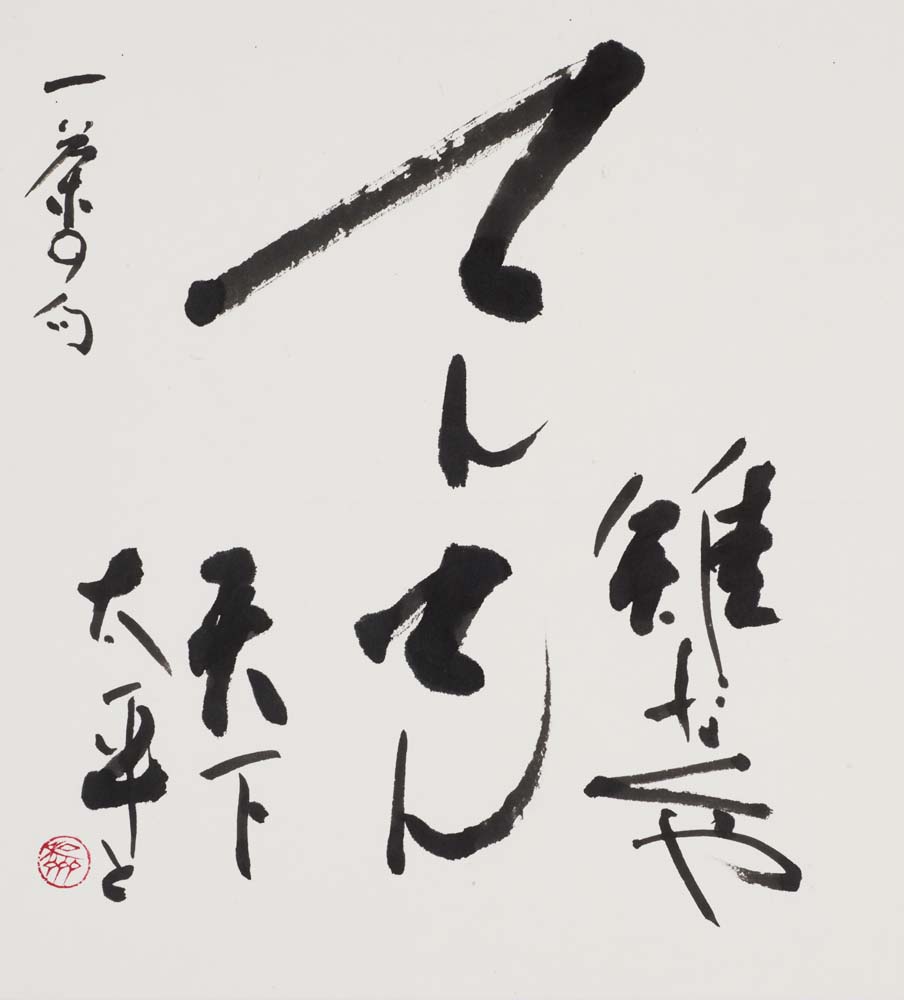 雉なくや
てんてん
天下
太平と
一茶の句